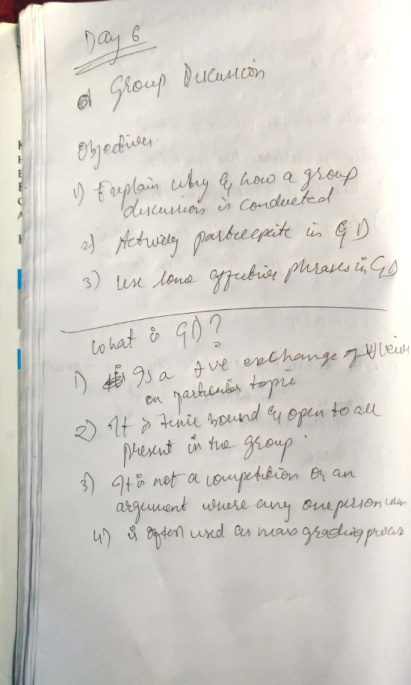 Day 6
Group Discussion
Objectives
1) Explain why & how a group
discussion is conducted
2) Actively participate in GD
3) Use some effective phrases in GD
What is GD?
1) Is a +ve exchange of views
on particular topic
2) It is time bound & open to all
present in the group.
3) It is not a competition or an
argument where any one person wins
4) is often used as mass grading process